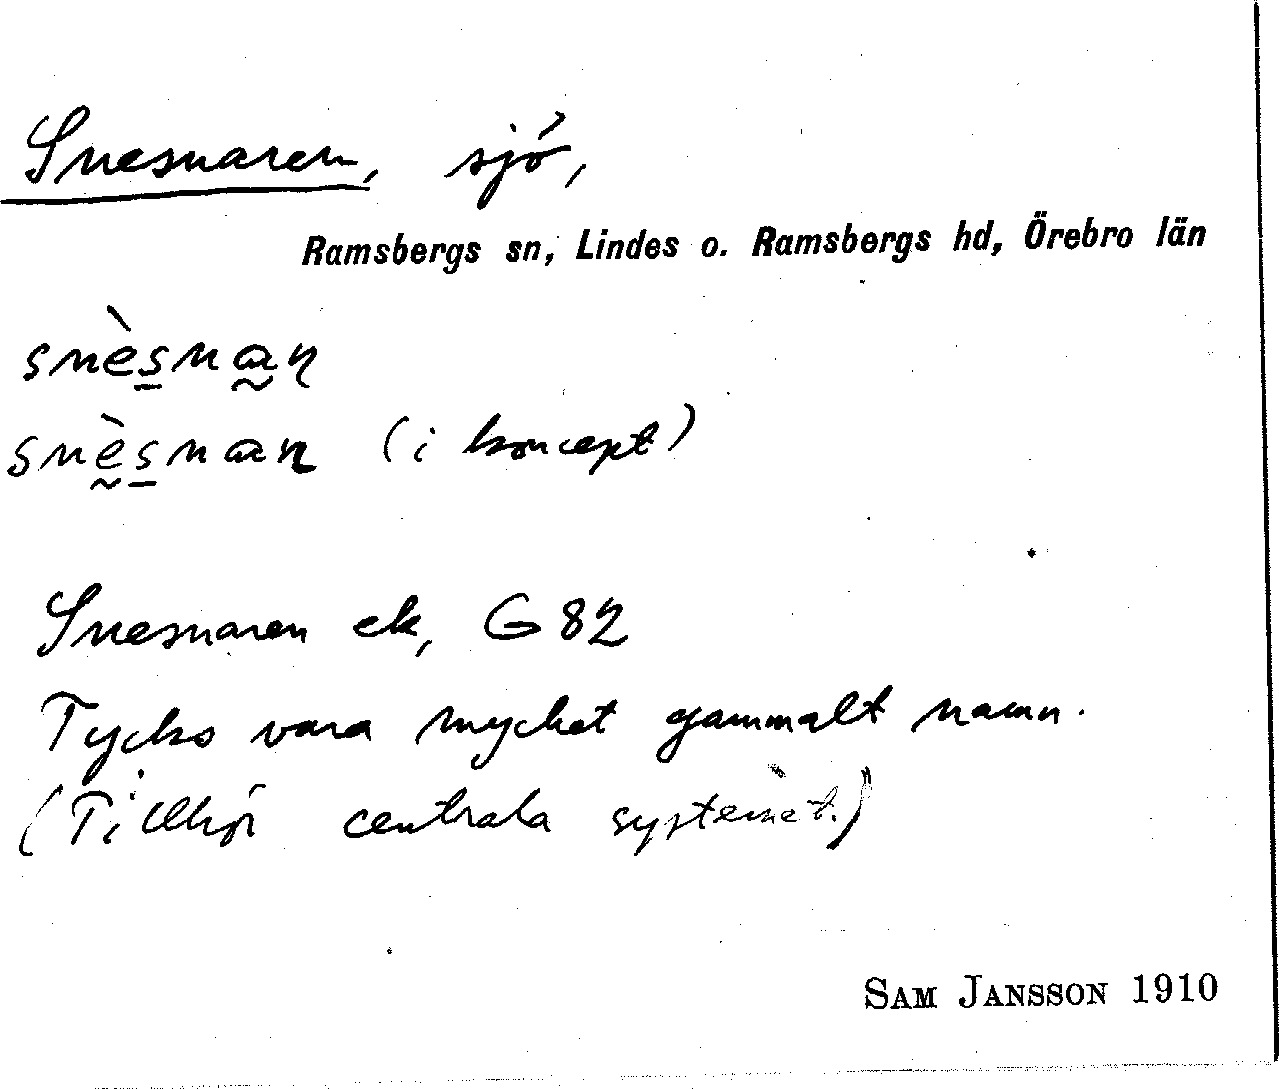 Snesnaren, sjö,
Ramsbergs sn, Lindes o. Ramsbergs hd, Örebro län
snèsnan
snèsnan (i koncept)
Snesnaren ek, G 82
Tycks vara mycket gammalt namn.
(Tillhör centrala systemet.)
SAM JANSSON 1910